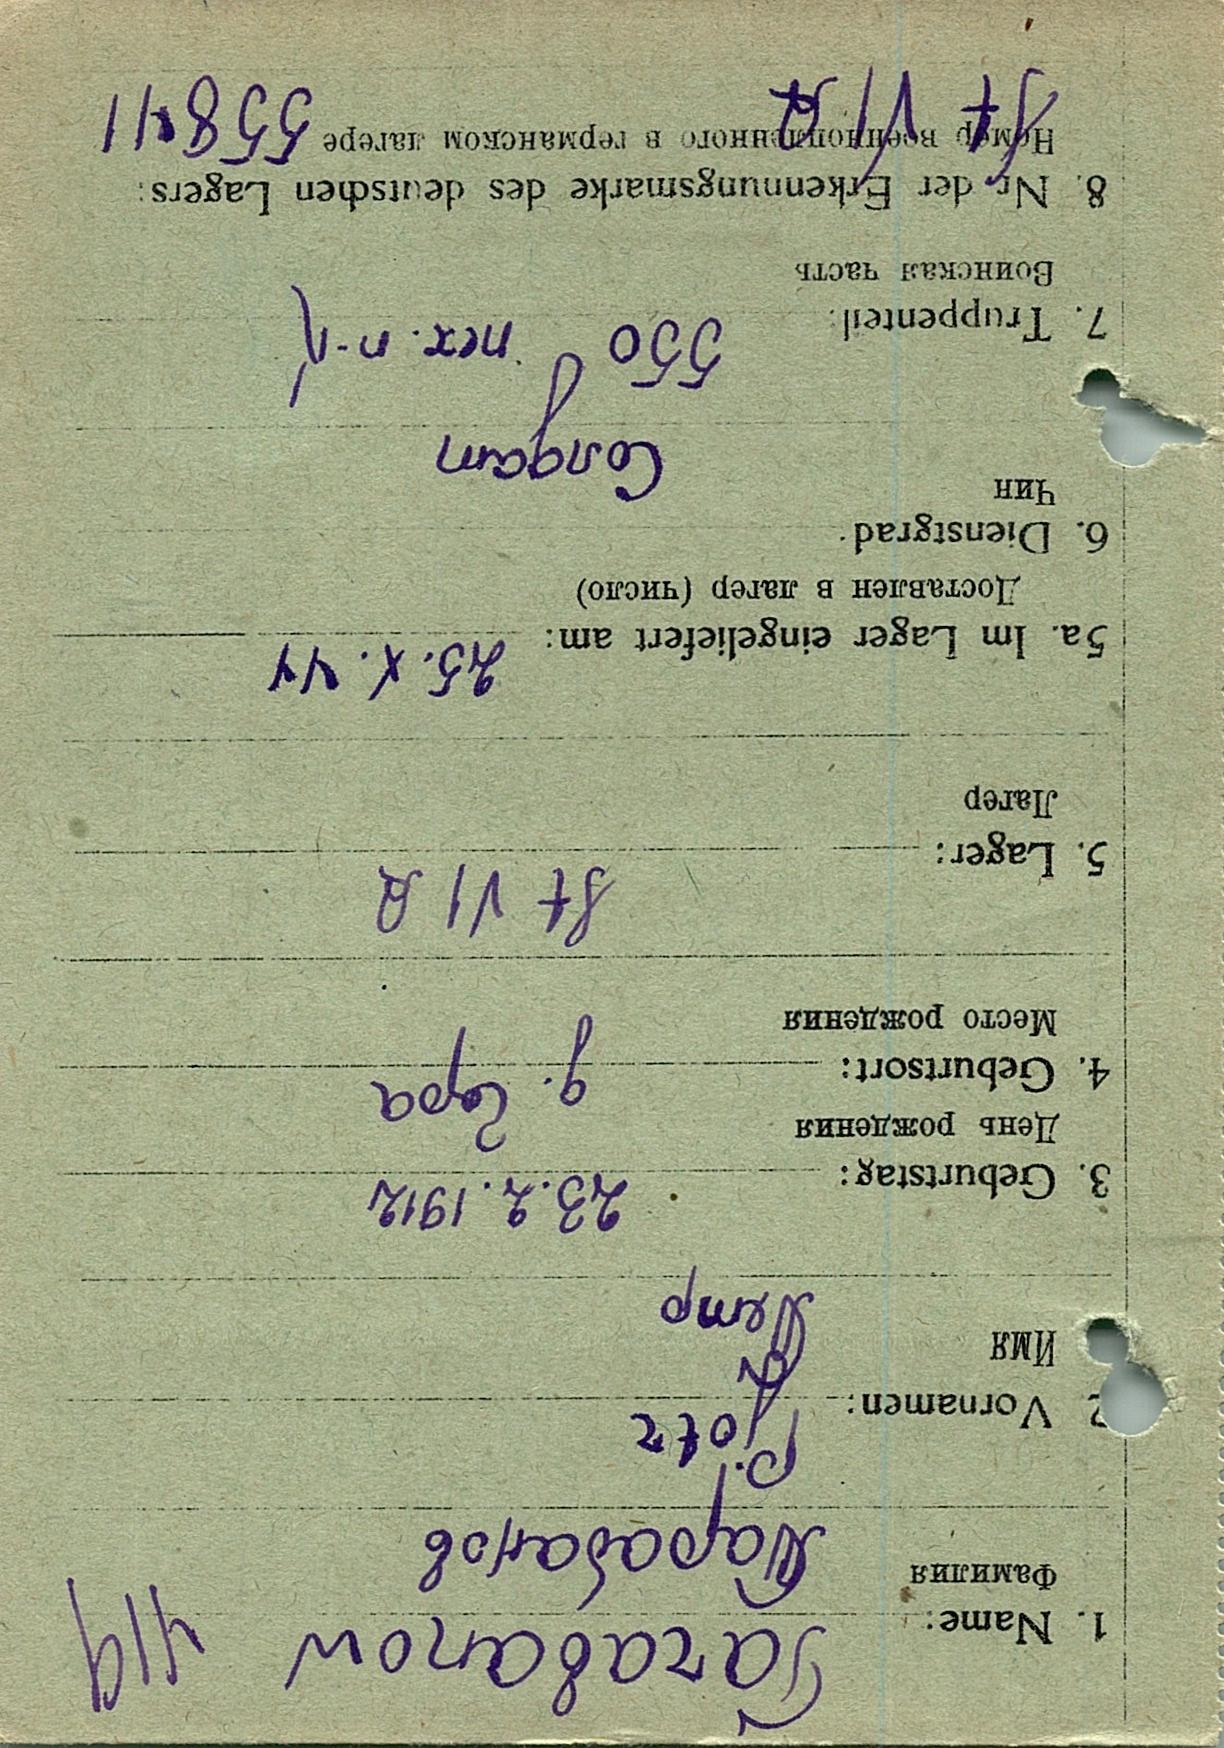 Tarabanow 419
1. Name:
Фамилия
Тарабанов
Pjotr
2 Vornamen:
Имя
Петр
23.2.1912
3. Geburtstag:
День рождения
д. Гора
4. Geburtsort:
Место рождения
St VI A
5. Lager:
Лагер
25. X. 41
5a. Im Lager eingeliefert am:
Доставлен в лагер (число)
6. Dienstgrad
Чин
Солдат
550 пех. п-к
7. Truppenteil:
Воинская часть
8. Nr. der Erkennungsmarke des deutschen Lagers:
Номер военнопленного в германском лагере 55841
St VI A